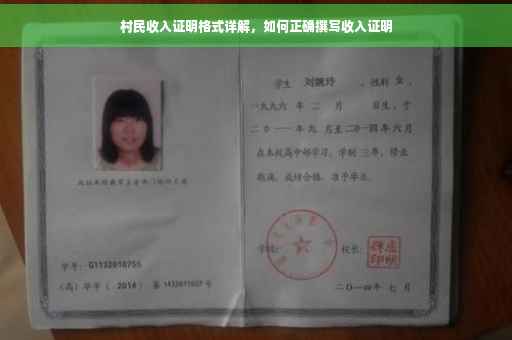 村民收入证明格式详解，如何正确撰写收入证明
学生 刘婉玲 ，性别 女 ，
一九九六 年 二 月 日生，于
二０一一 年 九 月至 二０一四 年 六 月
在本校高中部学习，学制 三 年，修业
期满，成绩合格，准予毕业。
学号：G1132010755
（高）毕字（ 2014 ）第 1432011027 号
学校：
校长：
二〇一四年 七 月